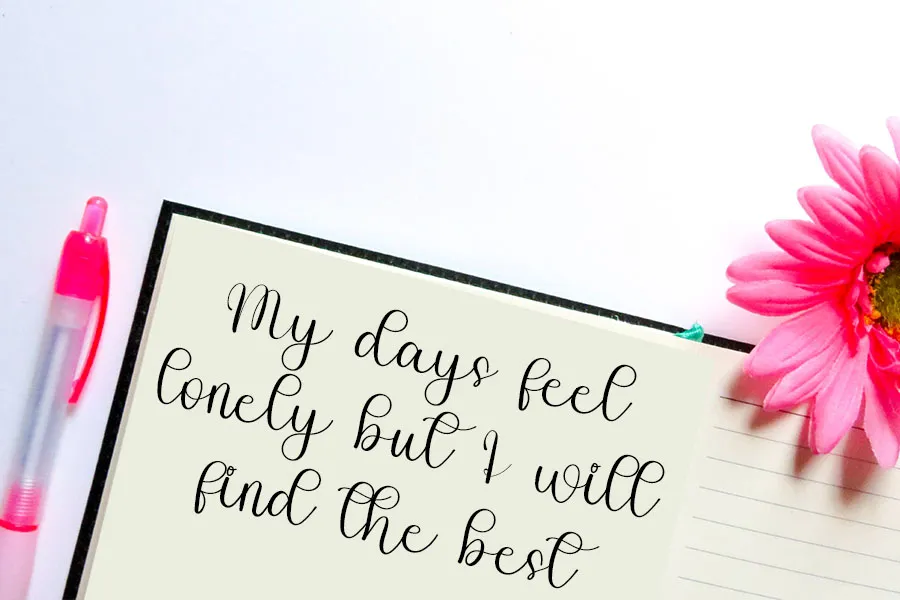 My days feel
lonely but I will
find the best